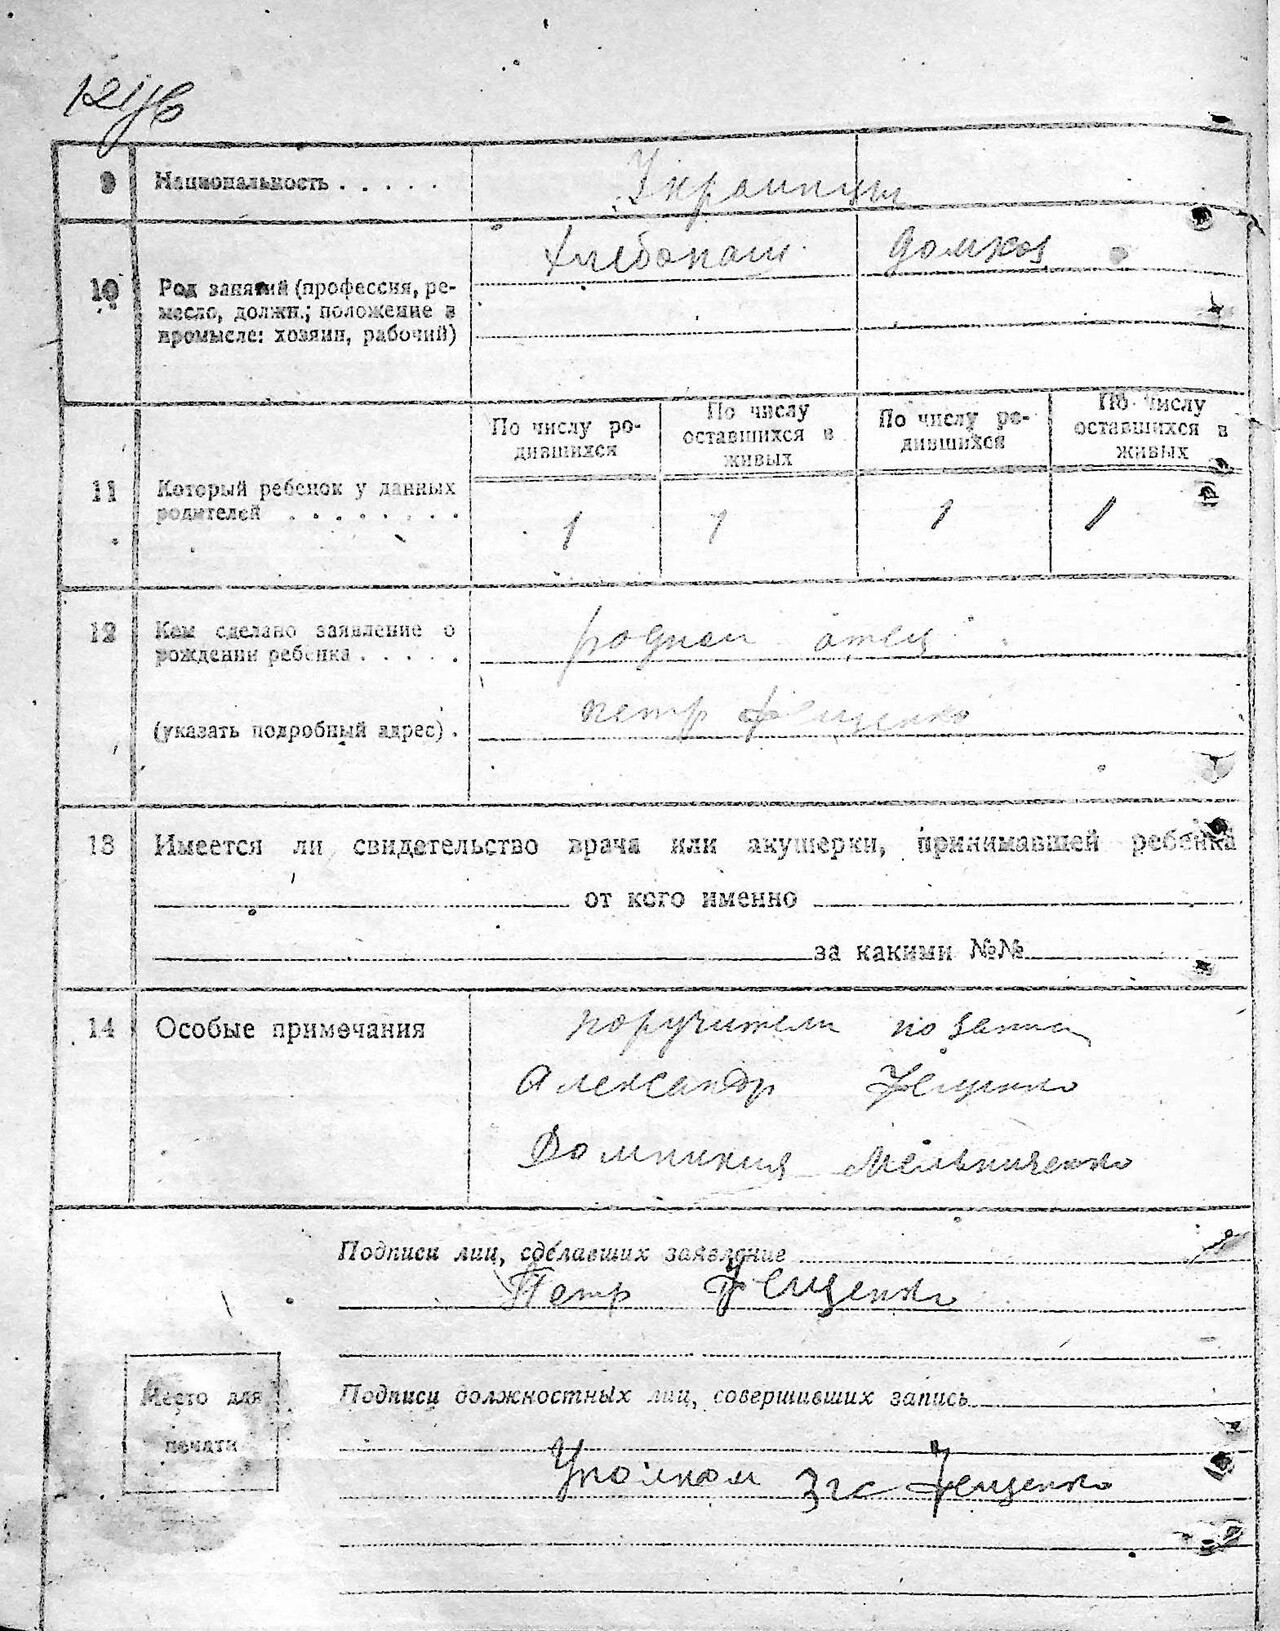 9 Национальность . . . . .
Украинцы
Хлебопаш домхоз
10 Род занятий (профессия, ре-
месло, должн.; положение в
промысле: хозяин, рабочий)
По числу ро-
дившихся
По числу
оставшихся в
живых
По числу ро-
дившихся
По числу
оставшихся в
живых
11 Который ребенок у данных
родителей . . . . . . . .
1 1 1 1
12 Кем сделано заявление о
рождении ребенка . . . . .
родной отец
(указать подробный адрес) .
петр Фещенко
13 Имеется ли свидетельство врача или акушерки, принимавшей ребенка
от кого именно
за какими №№
14 Особые примечания
поручители по
Александр Фещенко
Домникия Мельниченко
Подписи лиц, сделавших заявление
Петр Фещенко
Место для
печати
Подписи должностных лиц, совершивших запись
Уполном Загс Фещенко